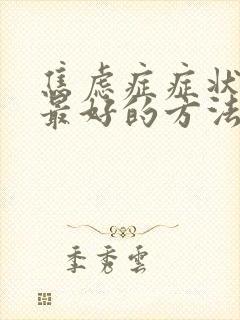 焦虑症症状
最好的方法
季秀雲